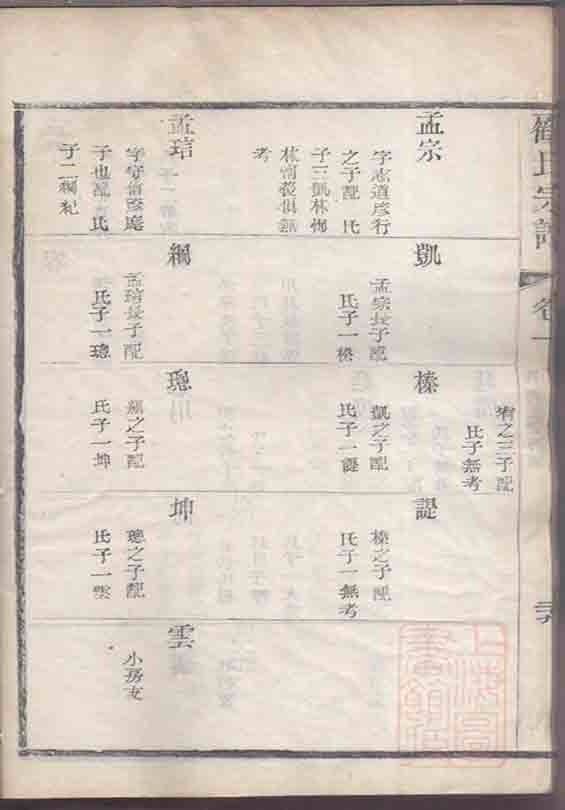 氏宗譜
卷一
孟宗
字志道彦行
之子配 氏
子三凱林
林 俱無
考
孟琯
字守
子也配 氏
子二綱紀
凱
孟宗長子配
氏子一榛
綱
孟琯長子配
氏子一璁
之三子配
氏子無考
榛
凱之子配
氏子一諟
璁
綱之子配
氏子一坤
諟
榛之子配
氏子一無考
坤
璁之子配
氏子一雲
雲
小房支
上海圖
書館